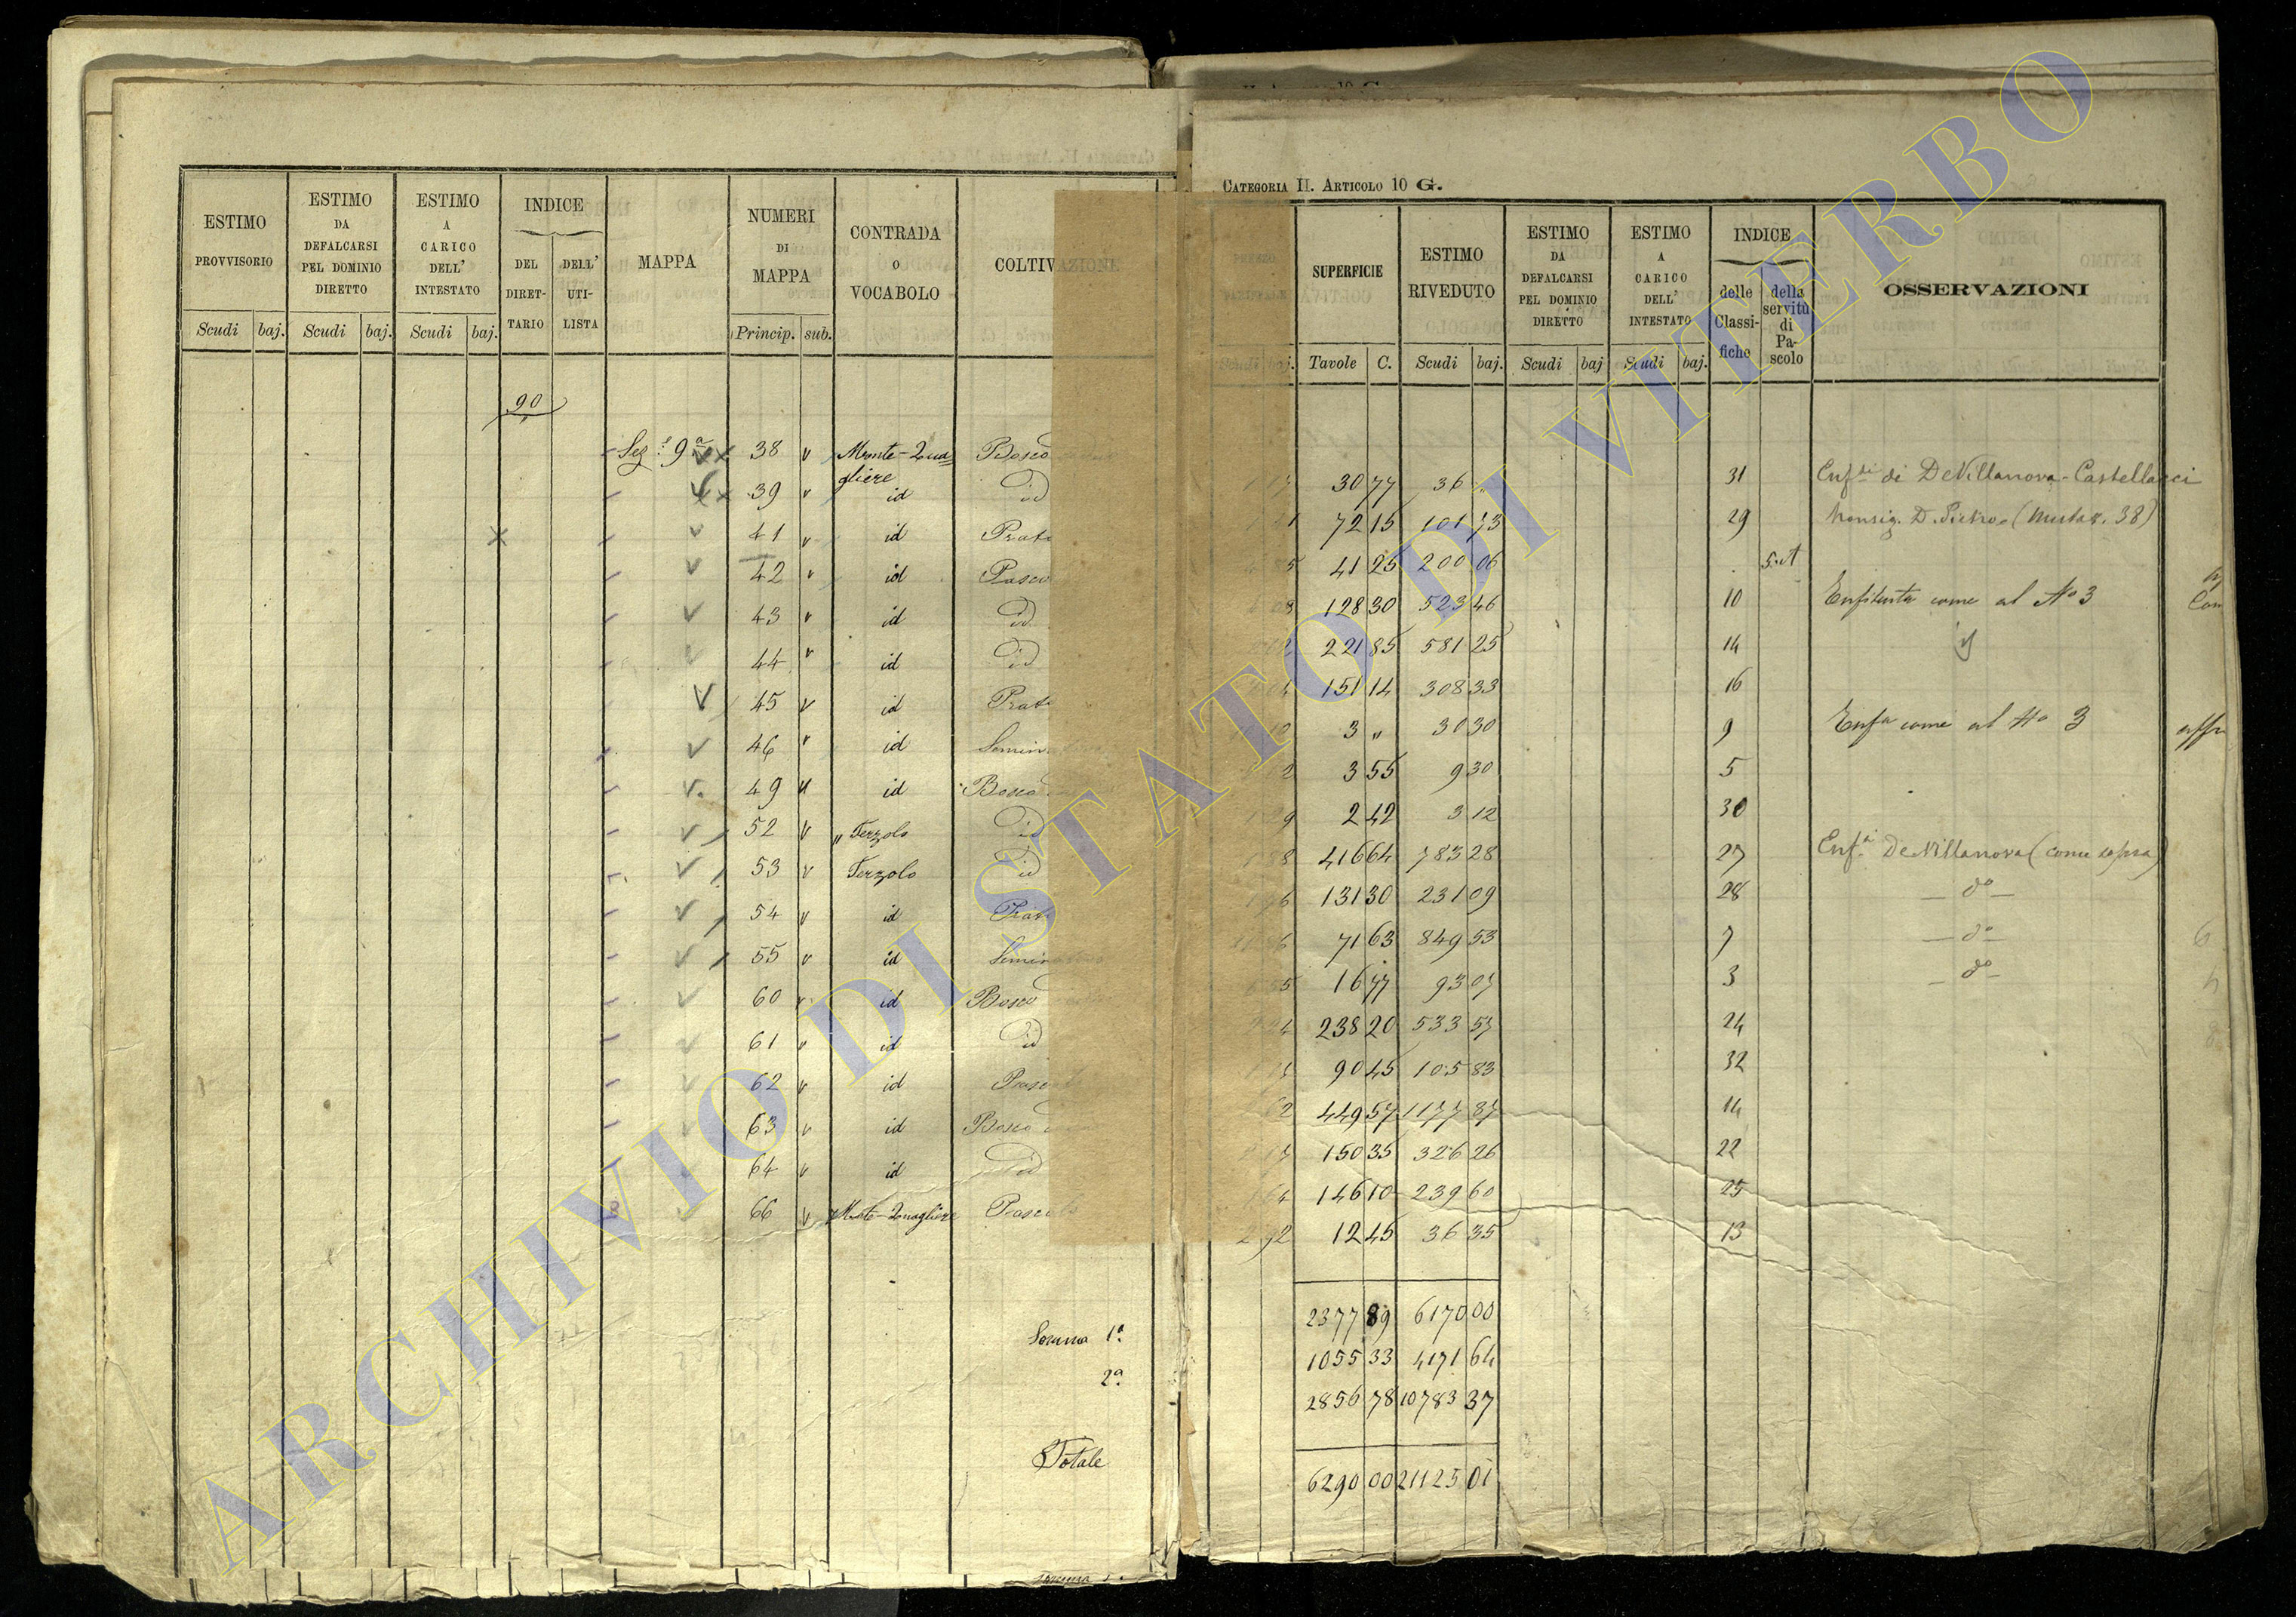 CATEGORIA II. ARTICOLO 10 G.
ESTIMO PROVVISORIO Scudi baj. ESTIMO DA DEFALCARSI PEL DOMINIO DIRETTO Scudi baj. ESTIMO A CARICO DELL' INTESTATO Scudi baj. INDICE DEL DIRET-TARIO DELL' UTI-LISTA MAPPA NUMERI DI MAPPA Princip. sub. CONTRADA O VOCABOLO COLTIVAZIONE
SUPERFICIE Tavole C. ESTIMO RIVEDUTO Scudi baj. ESTIMO DA DEFALCARSI PEL DOMINIO DIRETTO Scudi baj ESTIMO A CARICO DELL' INTESTATO Scudi baj. INDICE delle Classi-fiche della servitù di Pa-scolo OSSERVAZIONI
90
Sez.e 9a 38 Monte-Qua=gliere Bosco 30 77 36 31 Enf.ti di DeVillanova-Castellacci
39 id id 72 15 101 73 29 Monsig. D. Pietro
41 id Prato 41 25 200 06 5.A
42 id Pasco 128 30 523 46 10 Enfiteuta come al No 3
43 id id 221 85 581 25 14 id
44 id id 151 14 308 33 16
45 id Prato 3 " 30 30 9 Enfa come al No 3
46 id Semin 3 55 9 30 5
49 id Bosco 2 42 3 12 30
52 " Terzolo id 416 64 783 28 27 Enf.i DeVillanova (come sopra)
53 Terzolo id 131 30 231 09 28 — do —
54 id Prat 71 63 849 53 7 — do —
55 id Semin 16 77 93 07 3 — do —
60 id Bosco 238 20 533 57 24
61 id id 90 45 105 83 32
62 id Pascol 449 57 1177 87 14
63 id Bosco 150 35 326 26 22
64 id id 146 10 239 60 25
66 Monte-Quagliere Pascol 12 45 36 35 13
2377 89 6170 00
Somma 1a 1055 33 4171 64
2a 2856 78 10783 37
Totale 6290 00 21125 01
ARCHIVIO DI STATO DI VITERBO